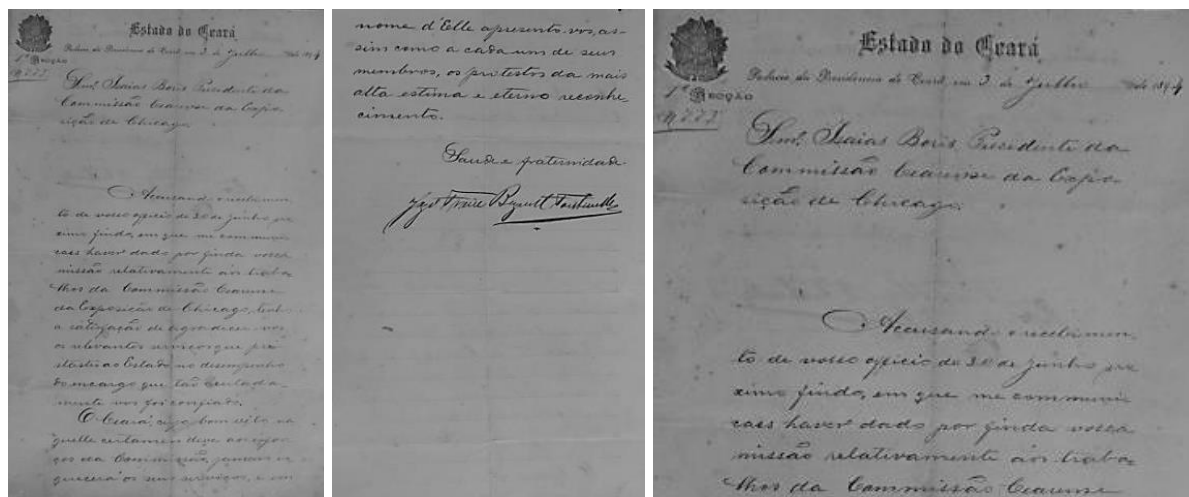 Estado do Ceará
Palacio da Presidencia do Ceará, em 3 de Julho de 1894
1ª Secção
N. 773
Snr. Isaias Boris Presidente da
Commissão Cearense da Expo-
sição de Chicago.
Accusando o recebimen-
to de vosso officio de 30 de Junho pro
ximo findo, em que me communi
caes haver dado por finda vossa
missão relativamente aos traba-
lhos da Commissão Cearense
da Exposição de Chicago, tenho
a satisfação de agradecer-vos
os relevantes serviços que pres
tastes ao Estado no desempenho
do encargo que tão
mente vos foi confiado.
O Ceará, cujo bom exito na
quelle certamen deve aos esfor
ços da Commissão, jamais es
quecerá os seus serviços, e em
nome d'Elle apresento-vos, as-
sim como a cada um de seus
membros, os protestos da mais
alta estima e eterno reconhe-
cimento.
Saude e fraternidade
Estado do Ceará
Palacio da Presidencia do Ceará, em 3 de Julho de 1894
1ª Secção
N. 773
Snr. Isaias Boris Presidente da
Commissão Cearense da Expo-
sição de Chicago.
Accusando o recebimen-
to de vosso officio de 30 de Junho pro
ximo findo, em que me communi
caes haver dado por finda vossa
missão relativamente aos traba-
lhos da Commissão Cearense